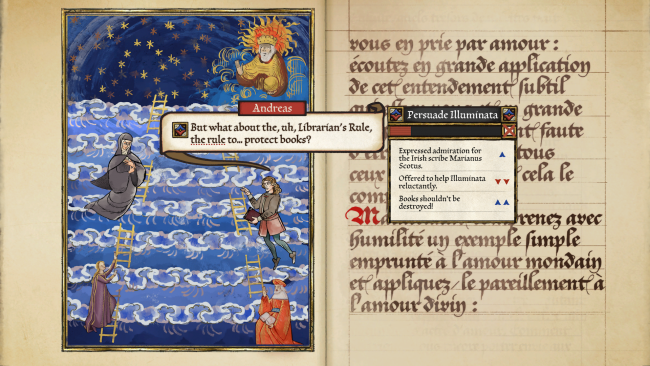 vous en prie par amour :
écoutez en grande application
de cet entendement subtil
grande
Andreas
But what about the, uh, Librarian's Rule,
the rule to... protect books?
Persuade Illuminata
Expressed admiration for
the Irish scribe Marianus
Scotus.
Offered to help Illuminata
reluctantly.
Books shouldn't be
destroyed!
faute
tous
ceux
cela le
com
prenez avec
humilité un exemple simple
emprunté à l'amour mondain
et appliquez-le pareillement à
l'amour divin :